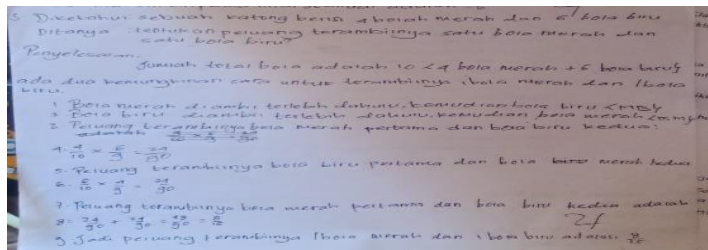 5 Diketahui sebuah katong berisi 4 bola merah dan 6 bola biru
Ditanya : tentukan peluang terambilnya satu bola merah dan
satu bola biru?
Penyelesaian
Jumlah total bola adalah 10 <4 bola merah + 6 bola biru}
ada dua kemungkinan cara untuk terambilnya 1 bola merah dan 1 bola
biru.
1 Bola merah diambil terlebih dahulu, kemudian bola biru <MB>
2 Bola biru diambil terlebih dahulu, kemudian bola merah
3 Peluang terambilnya bola merah pertama dan bola biru kedua:
adalah 4/10 × 6/9 = 24/90
4. 4/10 × 6/9 = 24/90
5. Peluang terambilnya bola biru pertama dan bola biru merah kedua
6. 6/10 × 4/9 = 24/90
7. Peluang terambilnya bola merah pertama dan bola biru kedua adalah
8 = 24/90 + 24/90 = 48/90 = 8/15
9. Jadi peluang terambilnya 1 bola merah dan 1 bola biru adalah 8/15